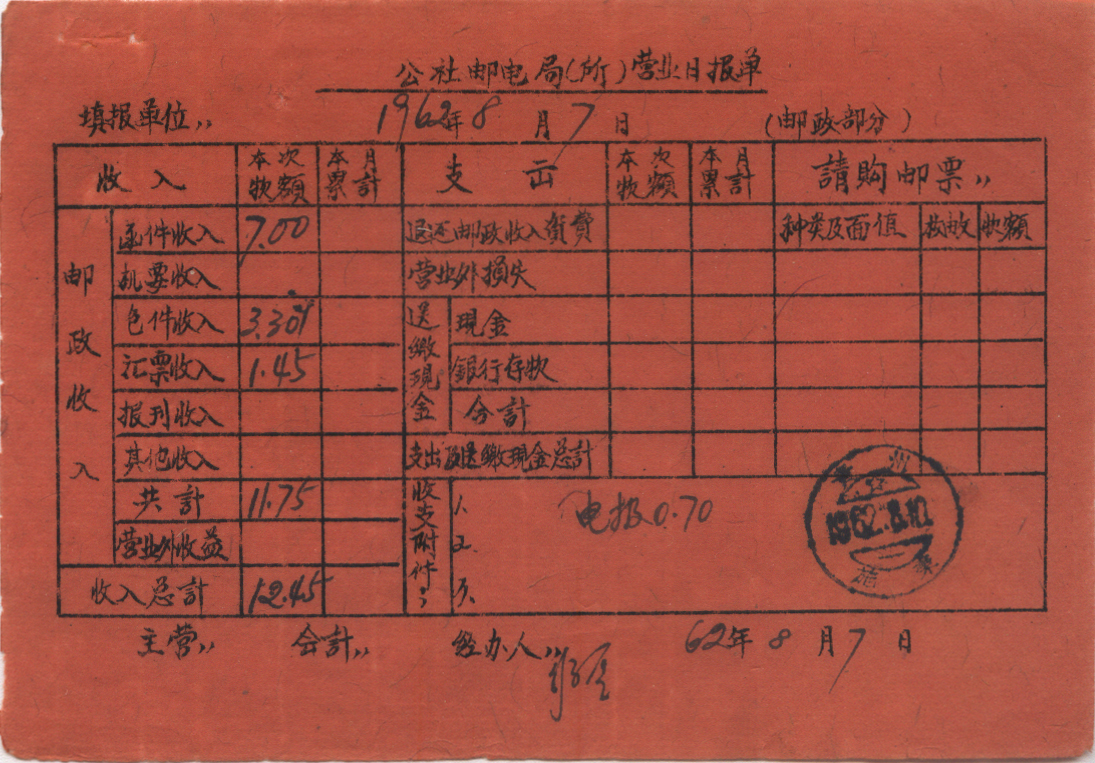 公社邮电局(所)营业日报单
填报单位,, 1962年8月7日 (邮政部分)
收入 本次款额 本月累計 支出 本次款额 本月累計 請购邮票,,
邮政收入 函件收入 7.00 退还邮政收入資費 种类及面值 枚数 款额
机要收入 营业外損失
包件收入 3.30 送缴現金 現金
汇票收入 1.45 銀行存款
报刊收入 合計
其他收入 支出及送缴現金总計
共計 11.75 收支附件: 1. 电报0.70
营业外收益 2.
收入总計 12.45 3.
州
1962.8.10
主营,, 会計,, 经办人,, 62年8月7日